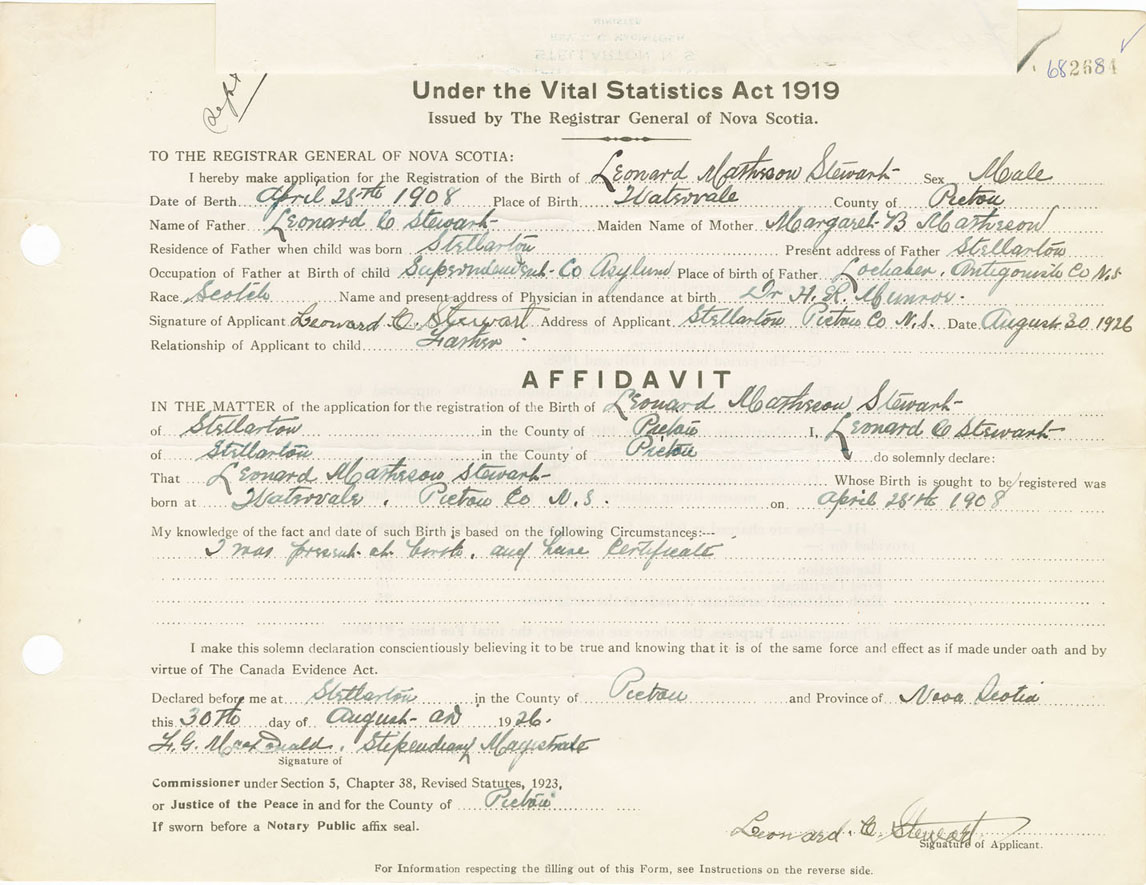 682684
Dept
Under the Vital Statistics Act 1919
Issued by The Registrar General of Nova Scotia.
TO THE REGISTRAR GENERAL OF NOVA SCOTIA:
I hereby make application for the Registration of the Birth of Leonard Matheson Stewart Sex Male
Date of Berth April 28th 1908 Place of Birth Watervale County of Pictou
Name of Father Leonard C Stewart Maiden Name of Mother Margaret B Matheson
Residence of Father when child was born Stellarton Present address of Father Stellarton
Occupation of Father at Birth of child Superindendent Co Asylund Place of birth of Father Lochaber, Antigonish Co N.S
Race Scotch Name and present address of Physician in attendance at birth Dr H. R. Munroe.
Signature of Applicant Leonard C. Stewart Address of Applicant Stellarton Pictou Co N.S. Date August 30 1926
Relationship of Applicant to child Father
AFFIDAVIT
IN THE MATTER of the application for the registration of the Birth of Leonard Matheson Stewart
of Stellarton in the County of Pictou I, Leonard C Stewart
of Stellarton in the County of Pictou do solemnly declare:
That Leonard Matheson Stewart Whose Birth is sought to be registered was
born at Watervale, Pictou Co N.S. on April 28th 1908
My knowledge of the fact and date of such Birth is based on the following Circumstances:--
I was present at birth, and have Certificate
I make this solemn declaration conscientiously believing it to be true and knowing that it is of the same force and effect as if made under oath and by
virtue of The Canada Evidence Act.
Declared before me at Stellarton in the County of Pictou and Province of Nova Scotia
this 30th day of August AD 1926.
MacDonald, Stipendiary Magistrate
Signature of
Commissioner under Section 5, Chapter 38, Revised Statutes, 1923,
or Justice of the Peace in and for the County of Pictou
If sworn before a Notary Public affix seal.
Leonard C. Stewart
Signature of Applicant.
For Information respecting the filling out of this Form, see Instructions on the reverse side.